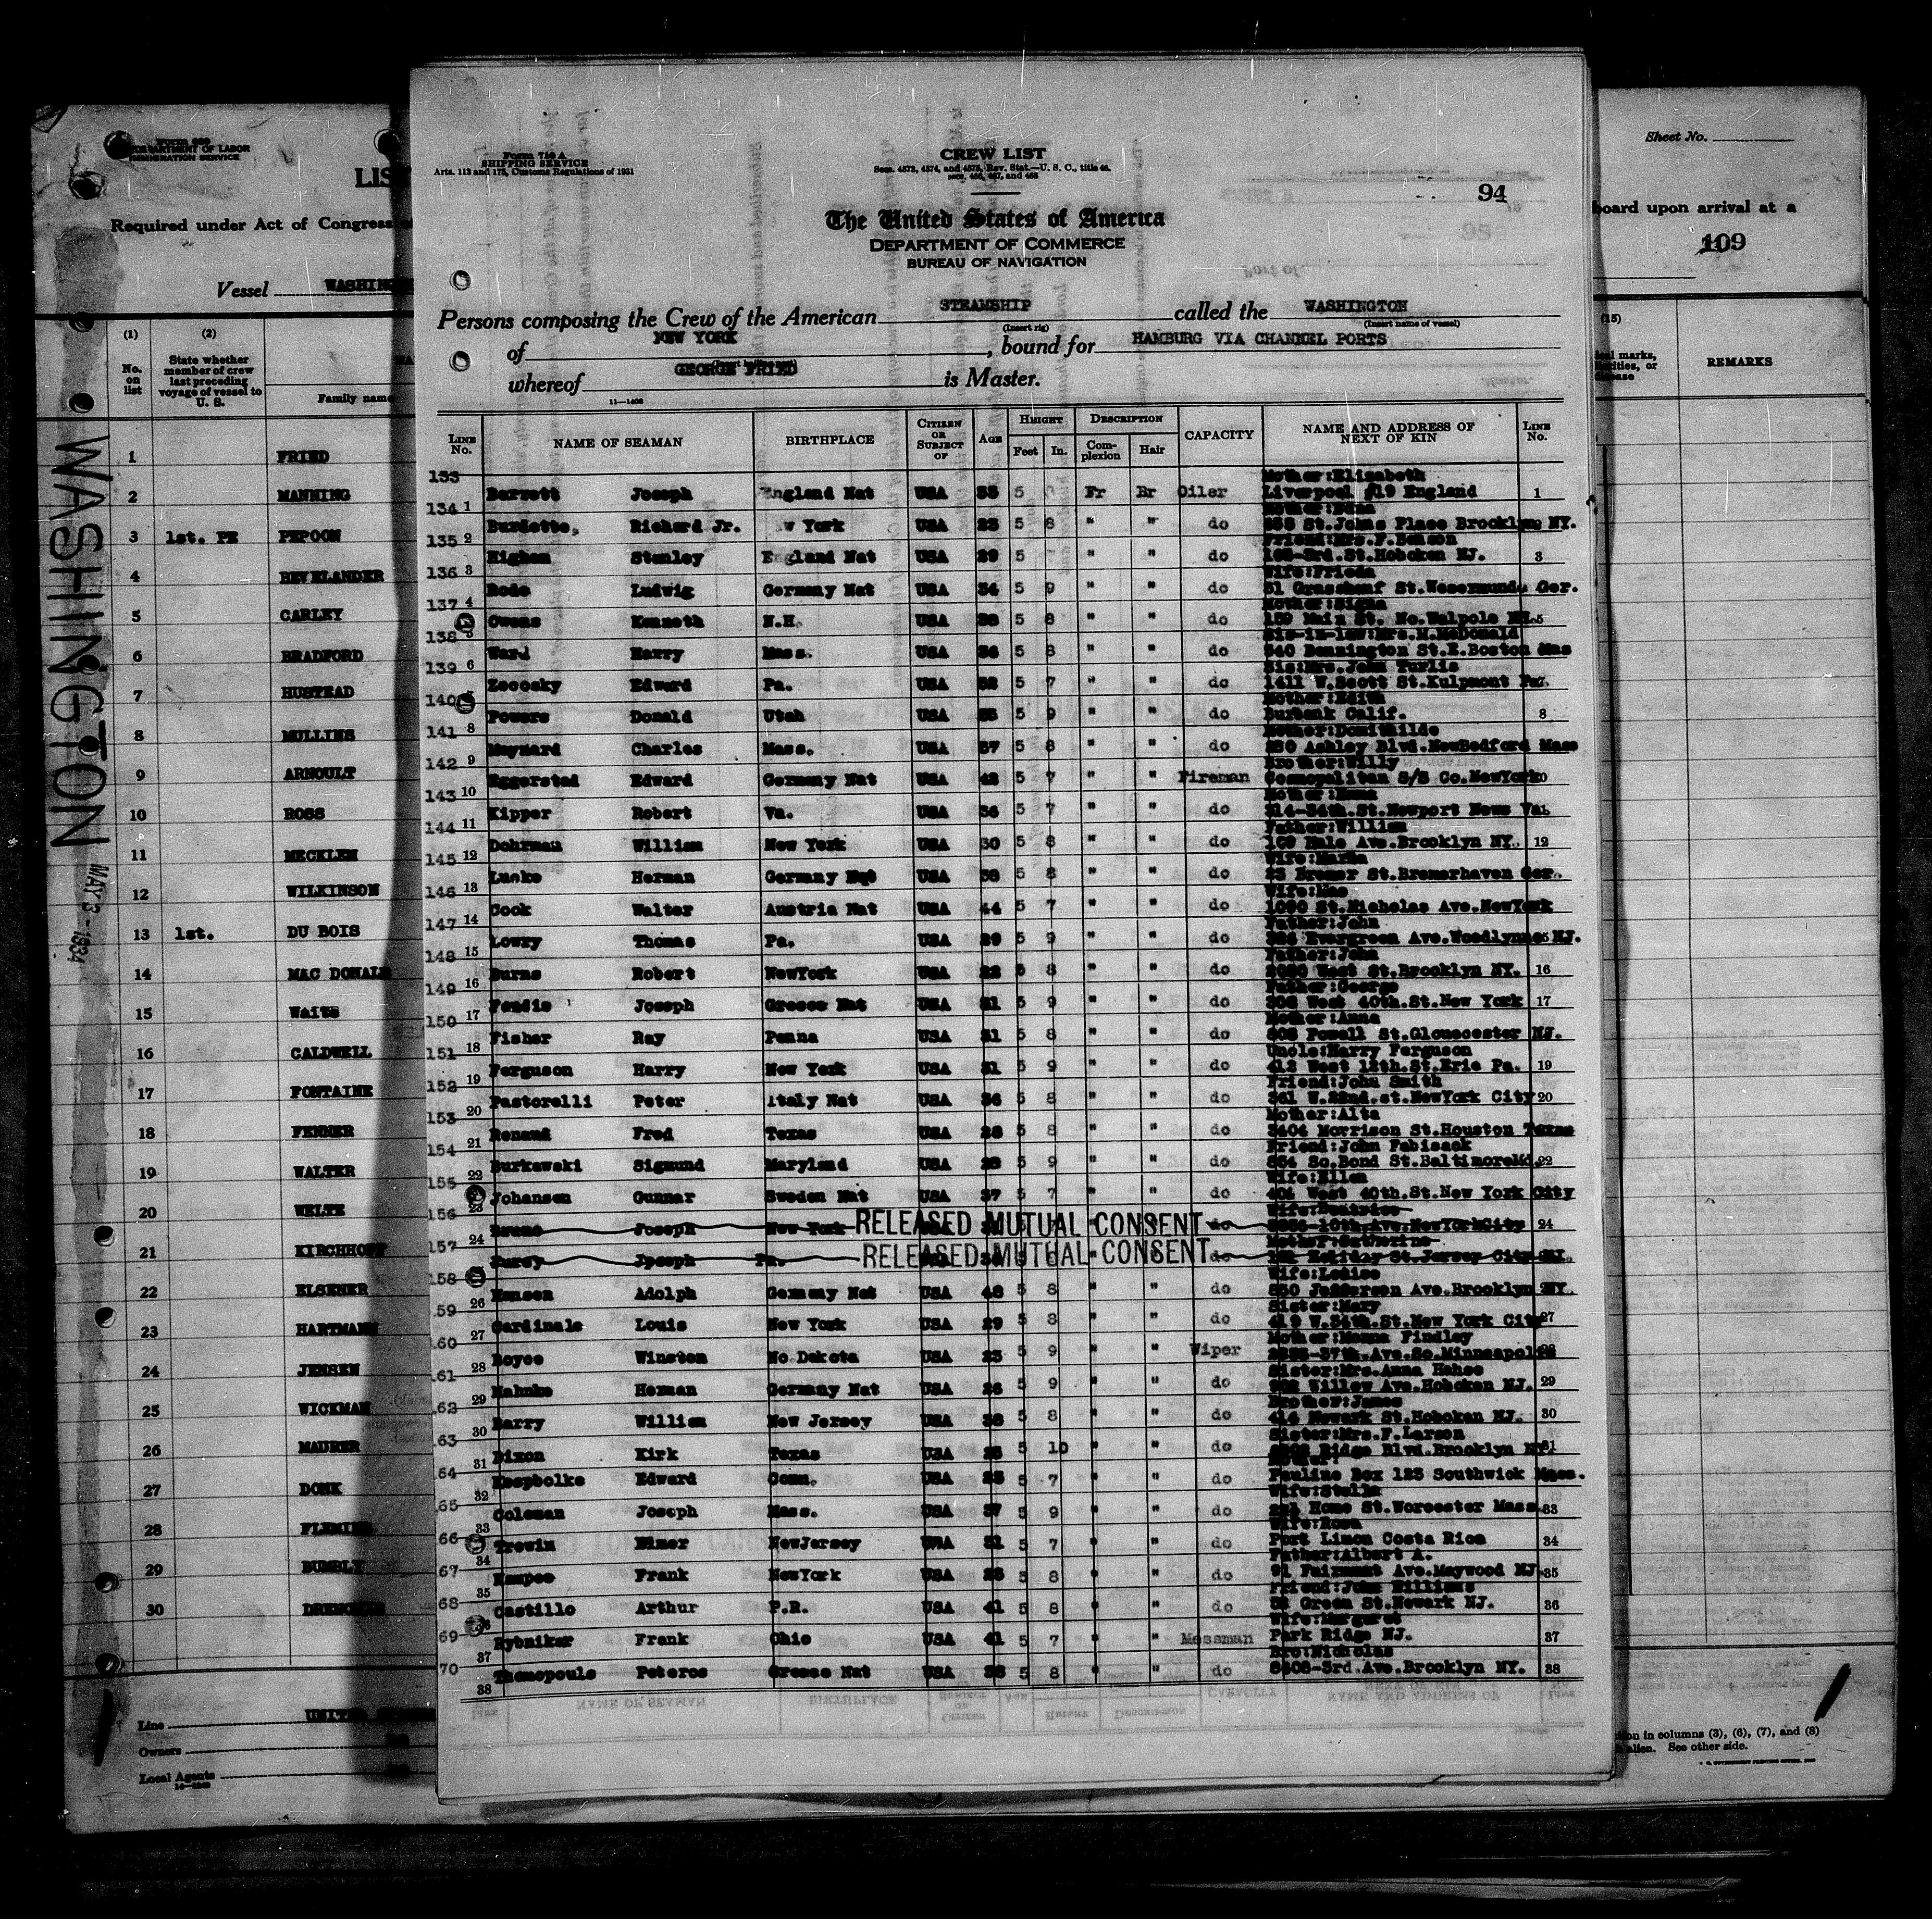 Form 689
DEPARTMENT OF LABOR
IMMIGRATION SERVICE
LIS
Required under Act of Congress
Vessel WASHING
(1) (2)
No. on list
State whether member of crew last preceding voyage of vessel to U. S.
Family name
1 FRIED
2 MANNING
3 1st. PE PEPOON
4 BEVELANDER
5 CARLEY
6 BRADFORD
7 HUSTEAD
8 MULLINS
9 ARNOULT
10 ROSS
11 MECKLEM
12 WILKINSON
13 1st. DU BOIS
14 MAC DONALD
15 WAITS
16 CALDWELL
17 FONTAINE
18 FENNER
19 WALTER
20 WELTE
21 KIRCHHOFF
22 ELSENER
23 HARTMANN
24 JENSEN
25 WICKMAN
26 MAURER
27 DONK
28 FLEMING
29 BUMBLY
30
Line UNITED
Owners
Local Agents
WASHINGTON
MAY 3 - 1934
Form 710 A
SHIPPING SERVICE
Arts. 112 and 173, Customs Regulations of 1931
CREW LIST
Secs. 4573, 4574, and 4575, Rev. Stat.—U. S. C., title 46, secs. 466, 467, and 468
94
The United States of America
DEPARTMENT OF COMMERCE
BUREAU OF NAVIGATION
Persons composing the Crew of the American STEAMSHIP called the WASHINGTON
(Insert rig) (Insert name of vessel)
of NEW YORK, bound for HAMBURG VIA CHANNEL PORTS
whereof GEORGE FRIED is Master.
11—1408
LINE No. NAME OF SEAMAN BIRTHPLACE CITIZEN OR SUBJECT OF AGE HEIGHT Feet In. DESCRIPTION Complexion Hair CAPACITY NAME AND ADDRESS OF NEXT OF KIN LINE No.
133 Mother:Elizabeth
1 Barrett Joseph England Nat USA 5 Fr Br Oiler Liverpool 19 England 1
134
2 Burdette, Richard Jr. w York USA 23 5 8 " " do St.Johns Place Brooklyn NY.
135 Friend:Mrs.F.Benson
3 Higham Stanley England Nat USA 29 5 " " do 3rd.St.Hoboken NJ. 3
136 Wife:Frieda
4 Rode Ludwig Germany Nat USA 34 5 9 " " do 51 St.Wesermunde Ger.
137 Mother:Signa
Owens Kenneth N.H. USA 5 8 " " do 159 Main St. No.Walpole NH. 5
138 Sis-in-law:Mrs.M.McDonald
6 Ward Harry Mass. USA 36 5 8 " " do 540 Bennington St.E.Boston Mas
139 Sis:Mrs. John Turlis
Zecosky Edward Pa. USA 5 7 " " do 1411 W.Scott St.Kulpmont Pa. 7
140 Mother:Edith
8 Powers Donald Utah USA 5 9 " " do Burbank Calif. 8
141 Mother:Domithilde
9 Maynard Charles Mass. USA 37 5 8 " " do Ashley Blvd.NewBedford Mass
142 Brother:Willy
10 Eggerstad Edward Germany Nat USA 42 5 7 " " Fireman Cosmopolitan S/S Co.NewYork
143 Mother:
11 Kipper Robert Va. USA 5 7 " " do 34th.St.Newport News Va.
144 Father:William
12 Dohrman William New York USA 30 5 8 " " do Hale Ave.Brooklyn NY. 12
145
13 Lueke Herman Germany Nat USA 5 8 " " do 23 Bremer St.Bremerhaven Ger.
146 Wife:Mae
14 Cook Walter Austria Nat USA 44 5 7 " " do St.Nicholas Ave.NewYork
147 Father:John
15 Lowry Thomas Pa. USA 29 5 9 " " do Evergreen Ave.Woodlynne NJ.
148 Father:John
16 Burns Robert NewYork USA 22 5 8 " " do West St.Brooklyn NY. 16
149 Father:George
17 Joseph Greece Nat USA 5 9 " " do West 40th.St.New York 17
150 Mother:Anna
18 Fisher Ray Penna USA 5 8 " " do Powell St.Gloucester NJ.
151 Uncle:Harry Ferguson
19 Ferguson Harry New York USA 5 9 " " do 412 West 12th.St.Erie Pa. 19
152 Friend:John Smith
20 Pastorelli Peter Italy Nat USA 36 5 8 " " do 361 W.22nd.st.NewYork City 20
153 Mother:Alta
21 Renaud Fred Texas USA 5 8 " " do 3404 Morrison St.Houston Texas
154 Friend:John Fabiszak
22 Burkawski Sigmund Maryland USA 5 9 " " do So.Bond St.BaltimoreMd. 22
155 Wife:Ellen
23 Johansen Gunnar Sweden Nat USA 37 5 7 " " do 404 West 40th.St.New York City
156 Wife:Beatrice
24 Joseph New York RELEASED MUTUAL CONSENT do 10th.Ave.NewYorkCity 24
157 Mother:Catherine
Joseph Pa. RELEASED MUTUAL CONSENT do Holiday St.Jersey City NJ.
158 Wife:Louise
26 Hansen Adolph Germany Nat USA 48 5 8 " " do Jefferson Ave.Brooklyn NY.
159 Sister:Mary
27 Cardinale Louis New York USA 29 5 8 " " do 419 W.34th.St.New York City 27
160 Mother: Findley
28 Boyce Winston No.Dakota USA 23 5 9 " " Wiper 37th.Ave.So.Minneapolis
161 Sister:Mrs.Anna Hahse
29 Mahnke Herman Germany Nat USA 26 5 9 " " do Willow Ave.Hoboken NJ. 29
162 Brother:James
30 Barry William New Jersey USA 5 8 " " do 414 Newark St.Hoboken NJ. 30
163 Sister:Mrs.F.Larson
31 Dixon Kirk Texas USA 5 10 " " do Ridge Blvd.Brooklyn NY
164 Mother:
32 Edward Conn. USA 5 7 " " do Pauline Box 123 Southwick Mass.
165 Wife:Stella
33 Coleman Joseph Mass. USA 37 5 9 " " do Home St.Worcester Mass 33
166 Wife:Rosa
34 Trewin Elmer NewJersey USA 5 7 " " do Port Limon Costa Rica 34
167 Father:Albert A.
35 Frank NewYork USA 5 8 " " do 91 Fairmont Ave.Maywood NJ. 35
168 Friend:John Williams
36 Castillo Arthur P.R. USA 41 5 8 " " do Green St.Newark NJ. 36
169 Wife:Margaret
37 Rybnikar Frank Ohio USA 41 5 7 " " Messman Park Ridge NJ. 37
170 Bro:Nicholas
38 Themopoule Peteros Greece Nat USA 5 8 " " do 3rd.Ave.Brooklyn NY. 38
Sheet No.
board upon arrival at a
109
(15)
REMARKS
on in columns (3), (6), (7), and (8)
alien. See other side.